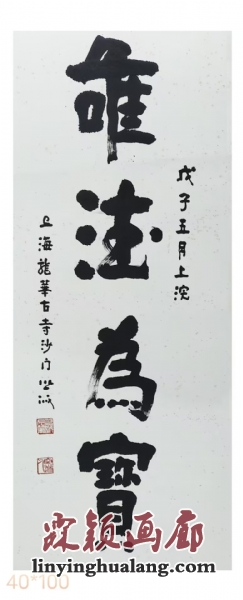 唯德為寶
戊子五月上浣
上海龍華古寺沙门照诚
霖颖画廊
linyinghualang.com
40*100